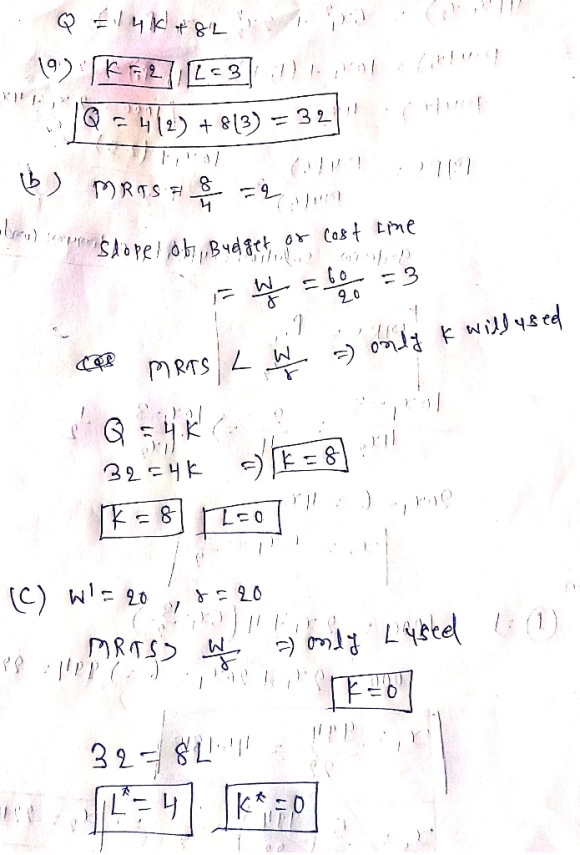 Q = 4K + 8L
(a.) K = 2, L = 3
Q = 4(2) + 8(3) = 32
(b) MRTS = 8/4 = 2
Slope of Budget or Cost Line
= w/r = 60/20 = 3
MRTS < w/r ⇒ only K will used
Q = 4K
32 = 4K ⇒ K = 8
K = 8 L = 0
(C) W' = 20, r = 20
MRTS > w/r ⇒ only L used
K = 0
32 = 8L
L* = 4 K* = 0